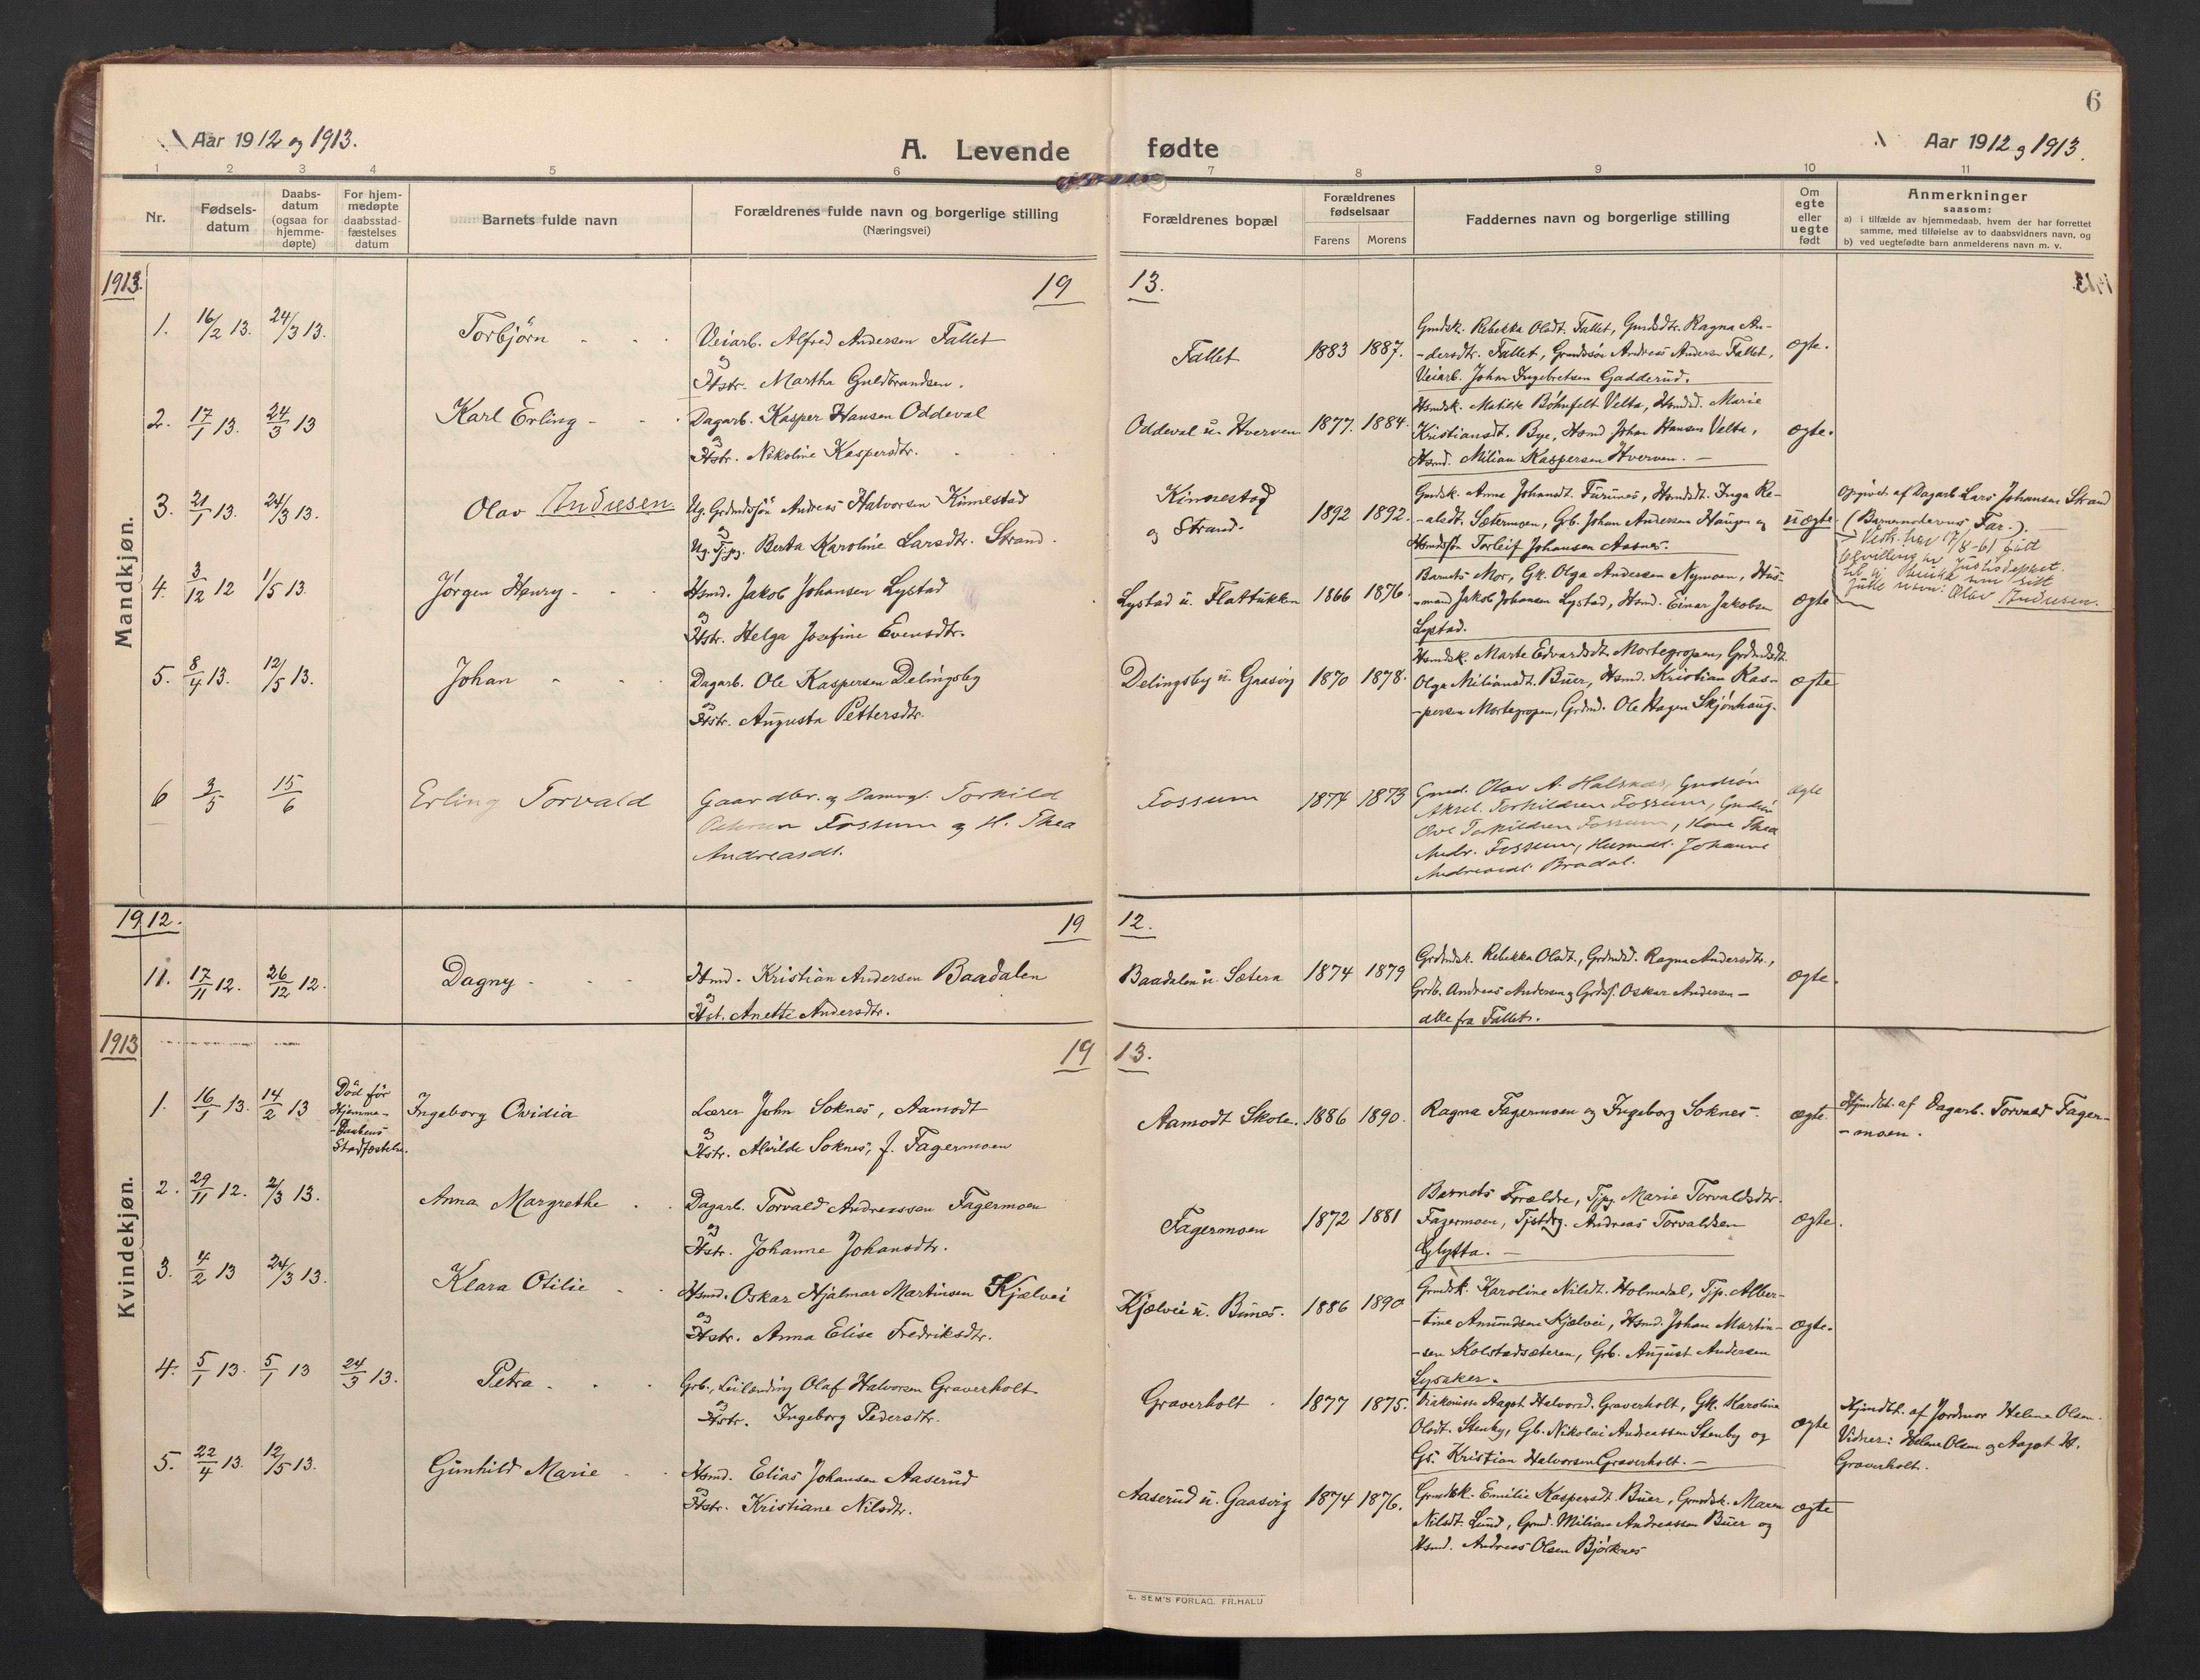 6
Aar 1912 og 1913.
A. Levende fødte
Aar 1912 og 1913.
1 2 3 4 5 6 7 8 9 10 11
Nr.
Fødsels-
datum
Daabs-
datum
(ogsaa for
hjemme-
døpte)
For hjem-
medøpte
daabsstad-
fæstelses
datum
Barnets fulde navn
Forældrenes fulde navn og borgerlige stilling
(Næringsvei)
Forældrenes bopæl
Forældrenes
fødselsaar
Farens Morens
Faddernes navn og borgerlige stilling
Om
egte
eller
uegte
født
Anmerkninger
saasom:
a) i tilfælde av hjemmedaab, hvem der har forrettet
samme, med tilføielse av to daabsvidners navn, og
b) ved uegtefødte barn anmelderens navn m. v.
Mandkjøn.
1913. 19 13.
1. 16/2 13. 24/3 13.
Torbjørn
Veiarb. Alfred Andersen Fallet
og
Hstr. Martha Guldbrandsen.
Fallet
1883 1887.
Gmdsk. Rebekka Olsdt. Fallet, Gmdsdtr. Ragna An-
-dersdtr. Fallet, Grmdssøn Andreas Andersen Fallet,
Veiarb. Johan Ingebretsen Gadderud.
egte.
2. 17/1 13. 24/3 13
Karl Erling
Dagarb. Kasper Hansen Oddeval
og
Hstr. Nikoline Kaspersdtr.
Oddeval u. Hverven
1877. 1884.
Hsmdsk. Matilde Bøhnfelt Velta, Hsmdsd. Marie
Kristiansdt. Bye, Hsmd Johan Hansen Velta,
Hsmd. Milian Kaspersen Hverven. -
egte.
3. 21/1 13. 24/3 13.
Olav Andresen
Ug. Grdmdssøn Andreas Halvorsen Kinnestad
og
Ug. Tjpg. Berta Karoline Larsdtr. Strand.
Kinnestad
og Strand.
1892 1892.
Gmdsk. Anna Johannsdt. Furunes, Hsmdsdt. Inga Re-
-alsdt. Sætermoen, Grb. Johan Andersen Haugen og
Hsmdssøn Torleif Johansen Aasnes.
uegte.
Opgivet af Dagarb Lars Johansen Strand
(Barnemoderens Far.).
Vedk. har 7/8-61 fått
bevilling av justisdepket.
til å bruke som sitt
fulle navn: Olav Andresen.
4. 3/12 12 1/5 13.
Jørgen Henry
Hsmd. Jakob Johansen Lystad
og
Hstr. Helga Josefine Evensdtr.
Lystad u. Flattukken
1866 1876.
Barnets Mor, Gk. Olga Andersen Nymoen, Hus-
-mand Jakob Johansen Lystad, Hsmd. Einar Jakobsen
Lystad.
egte
5. 8/4 13. 12/5 13.
Johan
Dagarb. Ole Kaspersen Delingsby
og
Hstr. Augusta Pettersdtr.
Delingsby u. Gaasvig
1870 1878.
Hsmdsk. Marte Edvardsdt. Mortegropen, Grdmdsdt.
Olga Miliansdt. Buer, Hsmd. Kristian Kas-
-persen Mortegropen, Grdmd. Ole Hagen Skjønhaug.
egte
6 3/5 15/6
Erling Torvald
Gaardbr. og Torkild
Fossum og H. Thea
Andreasdt.
Fossum
1874 1873
Gmd. Olav A. Halskar,
Aksel Torkildsen Fossum,
Ove Torkildsen Fossum, Kone Thea
Andr. Fossum, Johanne
Andreasdt. Bradal.
egte
Kvindekjøn.
1912. 19 12.
11. 17/11 12. 26/12 12.
Dagny
Hsmd. Kristian Andersen Baadalen
og
Hst. Anette Andersdtr.
Baadalen u. Sætern
1874 1879
Grdmdsk. Rebekka Olsdt., Grdmdsd. Ragna Andersdtr.,
Grdb. Andreas Andersen og Grdsf. Oskar Andersen -
alle fra Fallet.
egte.
1913 19 13.
1. 16/1 13. 14/2 13
Død før
Hjemme-
-Daabens
Stadfæstelse.
Ingeborg Ovidia
Lærer John Soknes, Aamodt
og
Hstr. Alvilde Soknes, f. Fagermoen
Aamodt Skole.
1886 1890.
Ragna Fagermoen og Ingeborg Soknes.
egte.
Hjmdbt. af Dagarb. Torvald Fager-
-moen.
2. 29/11 12. 2/3 13.
Anna Margrethe
Dagarb. Torvald Andreassen Fagermoen
og
Hstr. Johanne Johansdtr.
Fagermoen
1872 1881
Barnets Forældre, Tjpg. Marie Torvaldsdtr.
Fagermoen, Tjstdrg. Andreas Torvaldsen
Glytta. -
egte.
3. 4/2 13 24/3 13.
Klara Otilie
Hsmd. Oskar Hjalmar Martinsen Kjølvei
og
Hstr. Anna Elise Fredriksdtr.
Kjølvei u. Bunes.
1886 1890
Grmdsk. Karoline Nilsdt. Holmedal, Tjp. Alber-
-tine Amundsen Kjølvei, Hsmd. Johan Martin-
-sen Kolstadsæteren, Grb. August Andersen
Lysaker.
egte.
4. 5/1 13. 5/1 13 24/3 13.
Petra
Grb., Leilænding Olaf Halvorsen Graverholt
og
Hstr. Ingeborg Pedersdtr.
Graverholt
1877 1875.
Diakonisse Aagot Halvorsd. Graverholt, Gk. Karoline
Olsdt. Stenby, Gb. Nikolai Andreassen Stenby og
Gs. Kristian Halvorsen Graverholt. -
egte
Hjmdbt. af Jordmor Helene Olsen.
Vidner: Helene Olsen og Aagot H.
Graverholt.
5. 22/4 13. 12/5 13.
Gunhild Marie
Hsmd. Elias Johansen Aaserud
og
Hstr. Kristiane Nilsdtr.
Aaserud u. Gaasvig
1874 1876.
Grmdsk. Emilie Kaspersdt. Buer, Grmdsk. Maren
Nilsdt. Lund, Grmd. Milian Andreassen Buer og
Hsmd. Andreas Olsen Bjørknes
egte
E. SEM'S FORLAG. FR.HALD